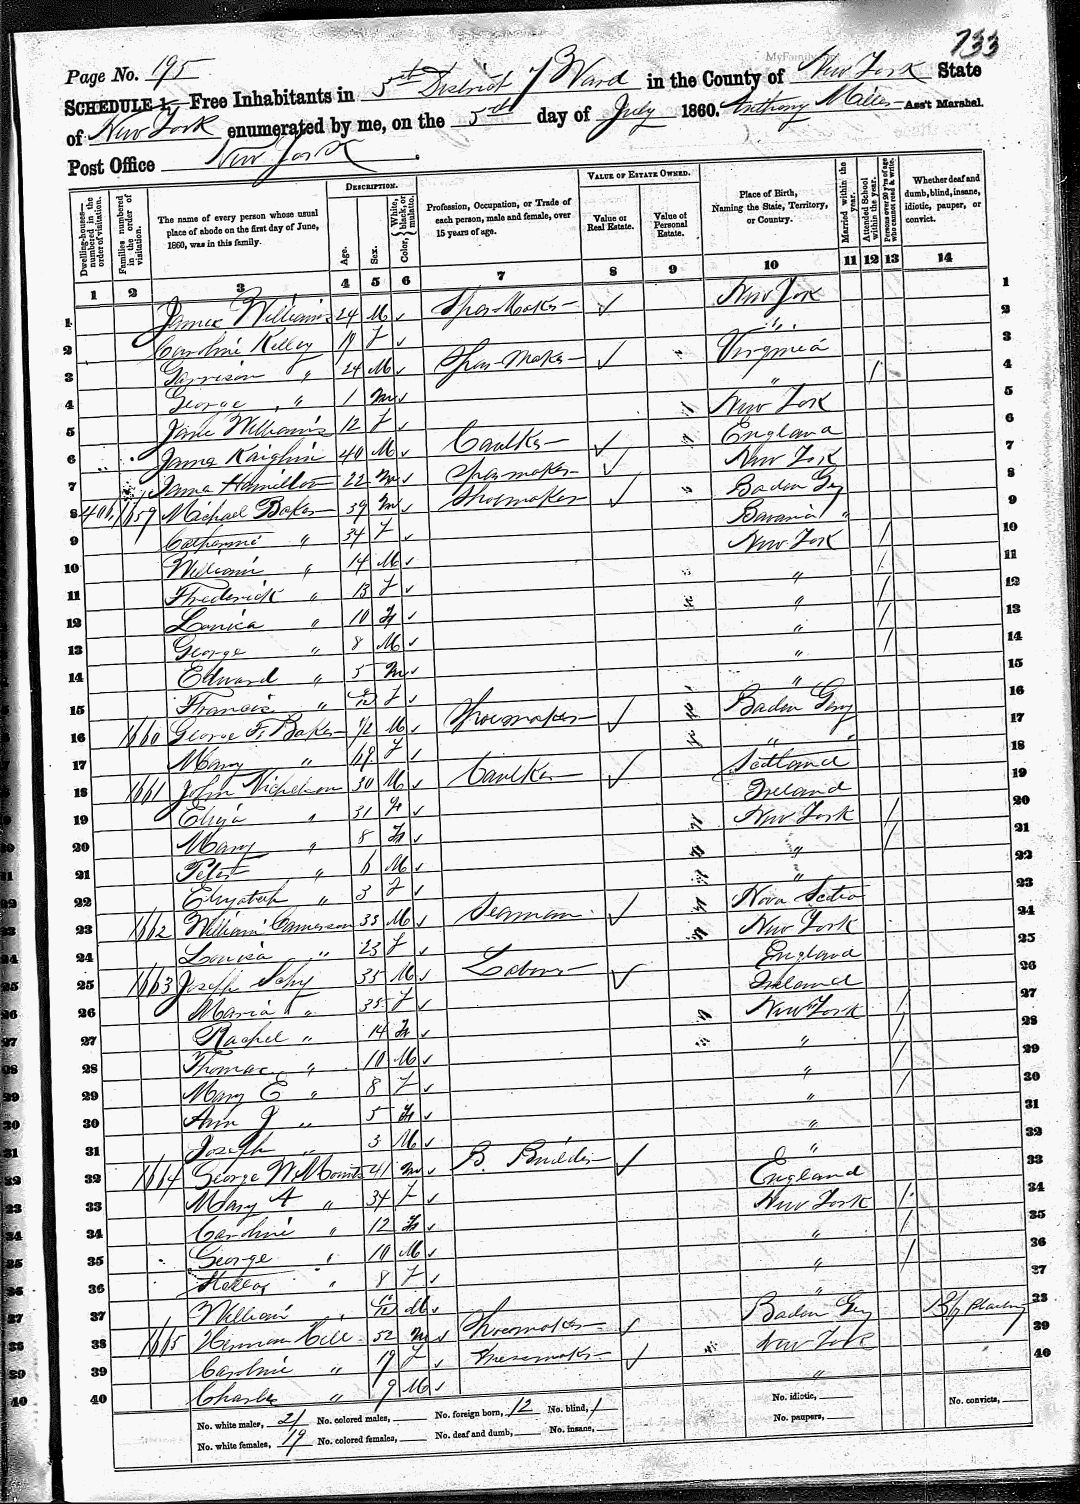 733
Page No. 195
SCHEDULE 1.— Free Inhabitants in 5th District 7 Ward in the County of New York State
of New York enumerated by me, on the 5th day of July 1860. Anthony Miller Ass't Marshal.
Post Office New York.
DESCRIPTION. VALUE OF ESTATE OWNED.
Dwelling-houses—numbered in the order of visitation. Families numbered in the order of visitation. The name of every person whose usual place of abode on the first day of June, 1860, was in this family. Age. Sex. Color, White, black, or mulatto. Profession, Occupation, or Trade of each person, male and female, over 15 years of age. Value of Real Estate. Value of Personal Estate. Place of Birth, Naming the State, Territory, or Country. Married within the year. Attended School within the year. Persons over 20 y'rs of age who cannot read & write. Whether deaf and dumb, blind, insane, idiotic, pauper, or convict.
1 2 3 4 5 6 7 8 9 10 11 12 13 14
1 James Williams 24 M Spar-Maker New York 1
2 Caroline Kelley 19 F " 2
3 Garrison " 24 M Spar-Maker Virginia 3
4 George " 1 M " 4
5 Jane Williams 12 F New York 5
6 James 40 M Caulker England 6
7 James Hamilton 22 M Spar-maker New York 7
8 1659 Michael Baker 39 M Shoemaker Baden Gey 8
9 Catharine " 34 F Bavaria " 9
10 William " 14 M New York 10
11 Frederick " 13 F " 11
12 Louisa " 10 F " 12
13 George " 8 M " 13
14 Edward " 5 M " 14
15 Francis " F " 15
16 1660 George F. Baker M Shoemaker Baden Gey 16
17 Mary " F " 17
18 1661 John Nicholson 30 M Caulker Scotland 18
19 Eliza " 31 F Ireland 19
20 Mary " 8 F New York 20
21 Peter " 6 M " 21
22 Elizabeth " 3 F " 22
23 1662 William Camerson 33 M Seaman Nova Scotia 23
24 Louisa " 23 F New York 24
25 1663 Joseph 35 M Labour England 25
26 Maria " 35 F Ireland 26
27 Rachel " 14 F New York 27
28 Thomas " 10 M " 28
29 Mary E " 8 F " 29
30 Ann J " 5 F " 30
31 Joseph " 3 M " 31
32 1664 George W 41 M B. Builder " 32
33 Mary A " 34 F England 33
34 Caroline " 12 F New York 34
35 George " 10 M " 35
36 " 8 F " 36
37 William " M " 37
38 1665 Herman Hill 52 M Shoemaker Baden Gey 38
39 Caroline " 19 F Dressmaker New York 39
40 Charles " 9 M " 40
No. white males, 21 No. colored males, No. foreign born, 12 No. blind, 1 No. idiotic, No. convicts,
No. white females, 19 No. colored females, No. deaf and dumb, No. insane, No. paupers,